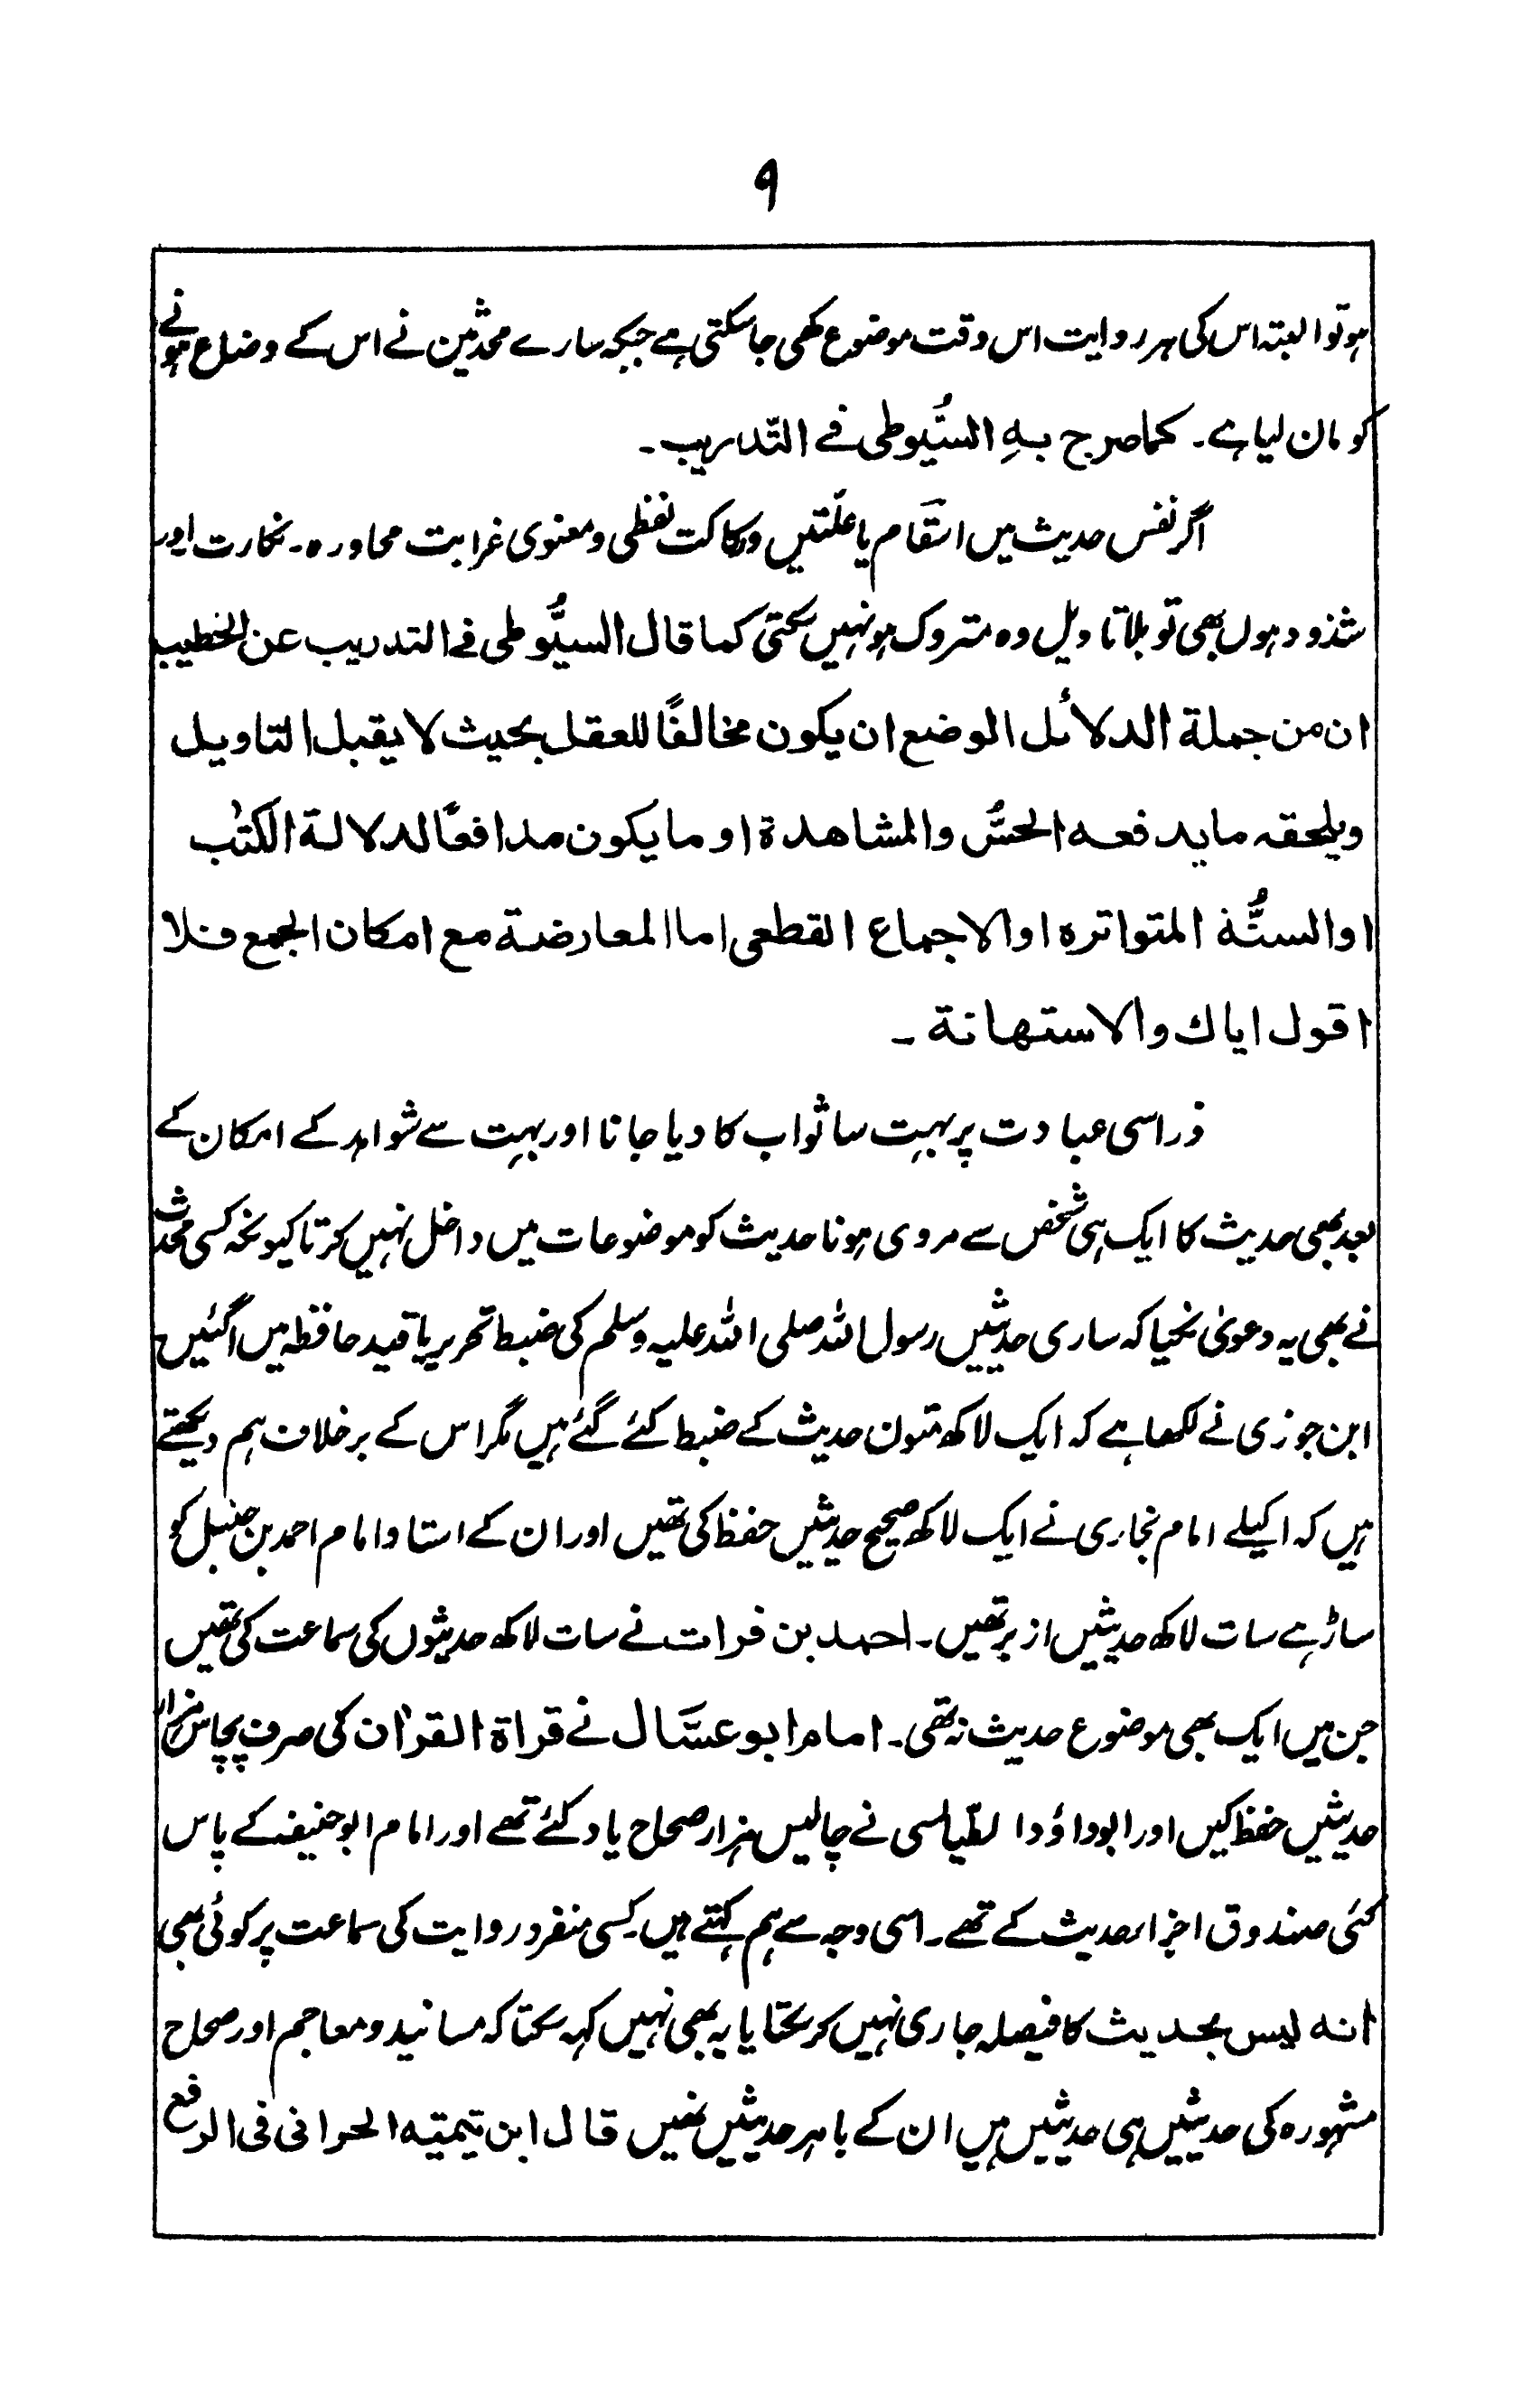 ۹
ہو تو البتہ اس کی ہر روایت اس وقت موضوع کہی جاسکتی ہے جبکہ سارے محدثین نے اس کے وضاع ہونے
کو مان لیا ہے۔ کما صرح بہِ السُّیوطی فے التّدریب۔
اگر نفس حدیث میں اسقام یا علّتیں ورکاکت لفظی ومعنوی غرابت محاورہ۔ نکارت اور
شذوذ ہوں بھی تو بلا تاویل وہ متروک ہو نہیں سکتی کما قال السیُّوطی فے التدریب عن الخطیب
ان من جملة الدلائل الوضع ان یکون مخالفًا للعقل بحیث لا یقبل التاویل
ویلحقہ ما یدفعہ الحسُّ والمشاھدة او ما یکون مدافعًا لدلالة الکتٰب
او السنُّۃ المتواترہ او الاجماع القطعی اما المعارضة مع امکان الجمع فلا
اقول ایاك والاستھانة ۔
ذراسی عبادت پر بہت سا ثواب کا دیا جانا اور بہت سے شواہد کے امکان کے
بعد بھی حدیث کا ایک ہی شخص سے مروی ہونا حدیث کو موضوعات میں داخل نہیں کرتا کیونکہ کسی محدث
نے بھی یہ دعویٰ نکیا کہ ساری حدیثیں رسول اللہ صلی اللہ علیہ وسلم کی ضبط تحریر یا قید حافظہ میں آگئیں
ابن جوزی نے لکھا ہے کہ ایک لاکھ متون حدیث کے ضبط کئے گئے ہیں مگر اس کے برخلاف ہم دیکھتے
ہیں کہ اکیلے امام بخاری نے ایک لاکھ صحیح حدیثیں حفظ کی تھیں اور ان کے استاد امام احمد بن حنبل کو
ساڑہے سات لاکھ حدیثیں ازبر تھیں۔ احمد بن فرات نے سات لاکھ حدیثوں کی سماعت کی تھیں
جن میں ایک بھی موضوع حدیث نہ تھی۔ امام ابو عسَّال نے قراة القرٰان کی صرف پچاس ہزار
حدیثیں حفظ کیں اور ابوداؤد الطّیالسی نے چالیس ہزار صحاح یاد کئے تھے اور امام ابوحنیفہ کے پاس
کئی صندوق اجزاء حدیث کے تھے۔ اسی وجہ سے ہم کہتے ہیں۔ کسی منفرد روایت کی سماعت پر کوئی بھی
انہ لیس بحدیث کا فیصلہ جاری نہیں کرسکتا یا یہ بھی نہیں کہہ سکتا کہ مسانید ومعاجم اور صحاح
مشہورہ کی حدیثیں ہی حدیثیں ہیں ان کے باہر حدیثیں نہیں قال ابن تیمیتہ الحرانی فی الرفع